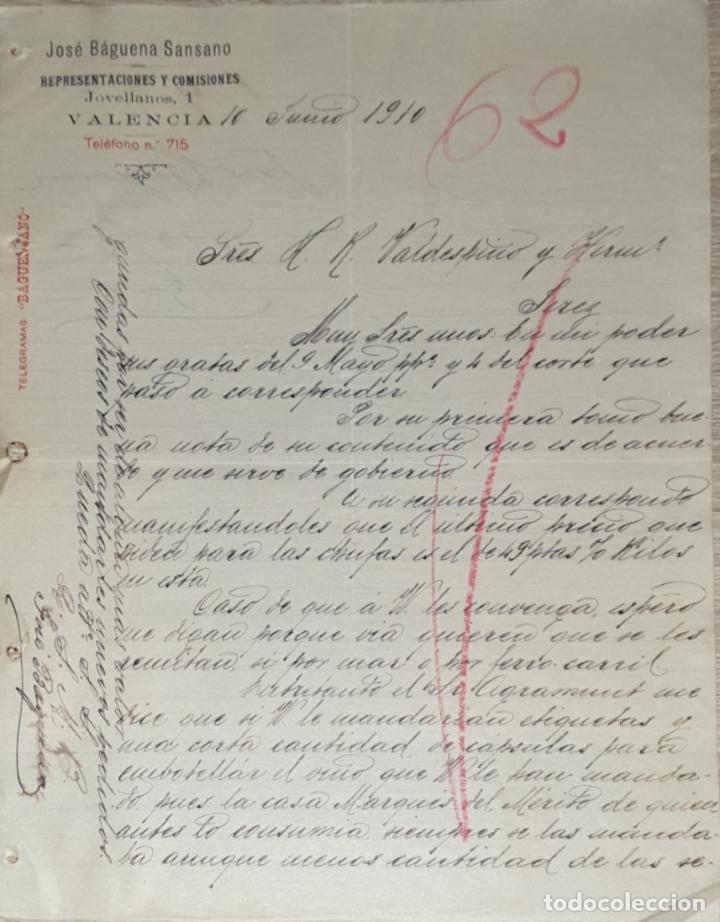 José Báguena Sansano
REPRESENTACIONES Y COMISIONES
Jovellanos, 1
VALENCIA 10 Junio 1910
Teléfono n.º 715
62
TELEGRAMAS: "BAGUENSANO"
Sres A. R. Valdespino y Hermº
Jerez
Muy Sres mios: En mi poder
sus gratas del 9 Mayo ppº y 4 del corte que
paso á corresponder
Por su primera tomo bue-
na nota de su contenido que es de acuer-
do y me sirve de gobierno
A su segunda correspondo
manifestandoles que el último precio que
para las chufas es el de 49 ptas % Kilos
en esta
Caso de que á V. les convenga, espero
me digan porque via quieren que se les
remitan, si por mar o por ferro-carril
Entretanto el Sr. Agramunt me
dice que si V. le mandarian etiquetas y
una corta cantidad de capsulas para
embotellar el vino que V. le han manda-
do, pues la casa Marques del Mérito de quien
antes lo consumia siempre se las manda-
ba aunque menos cantidad de las se-
gundas por ser de algun mas valor
Con deseos de mandarles nuevos pedidos
Queda a. Sº S. S.
José Baguena
todocoleccion
todocoleccion.net